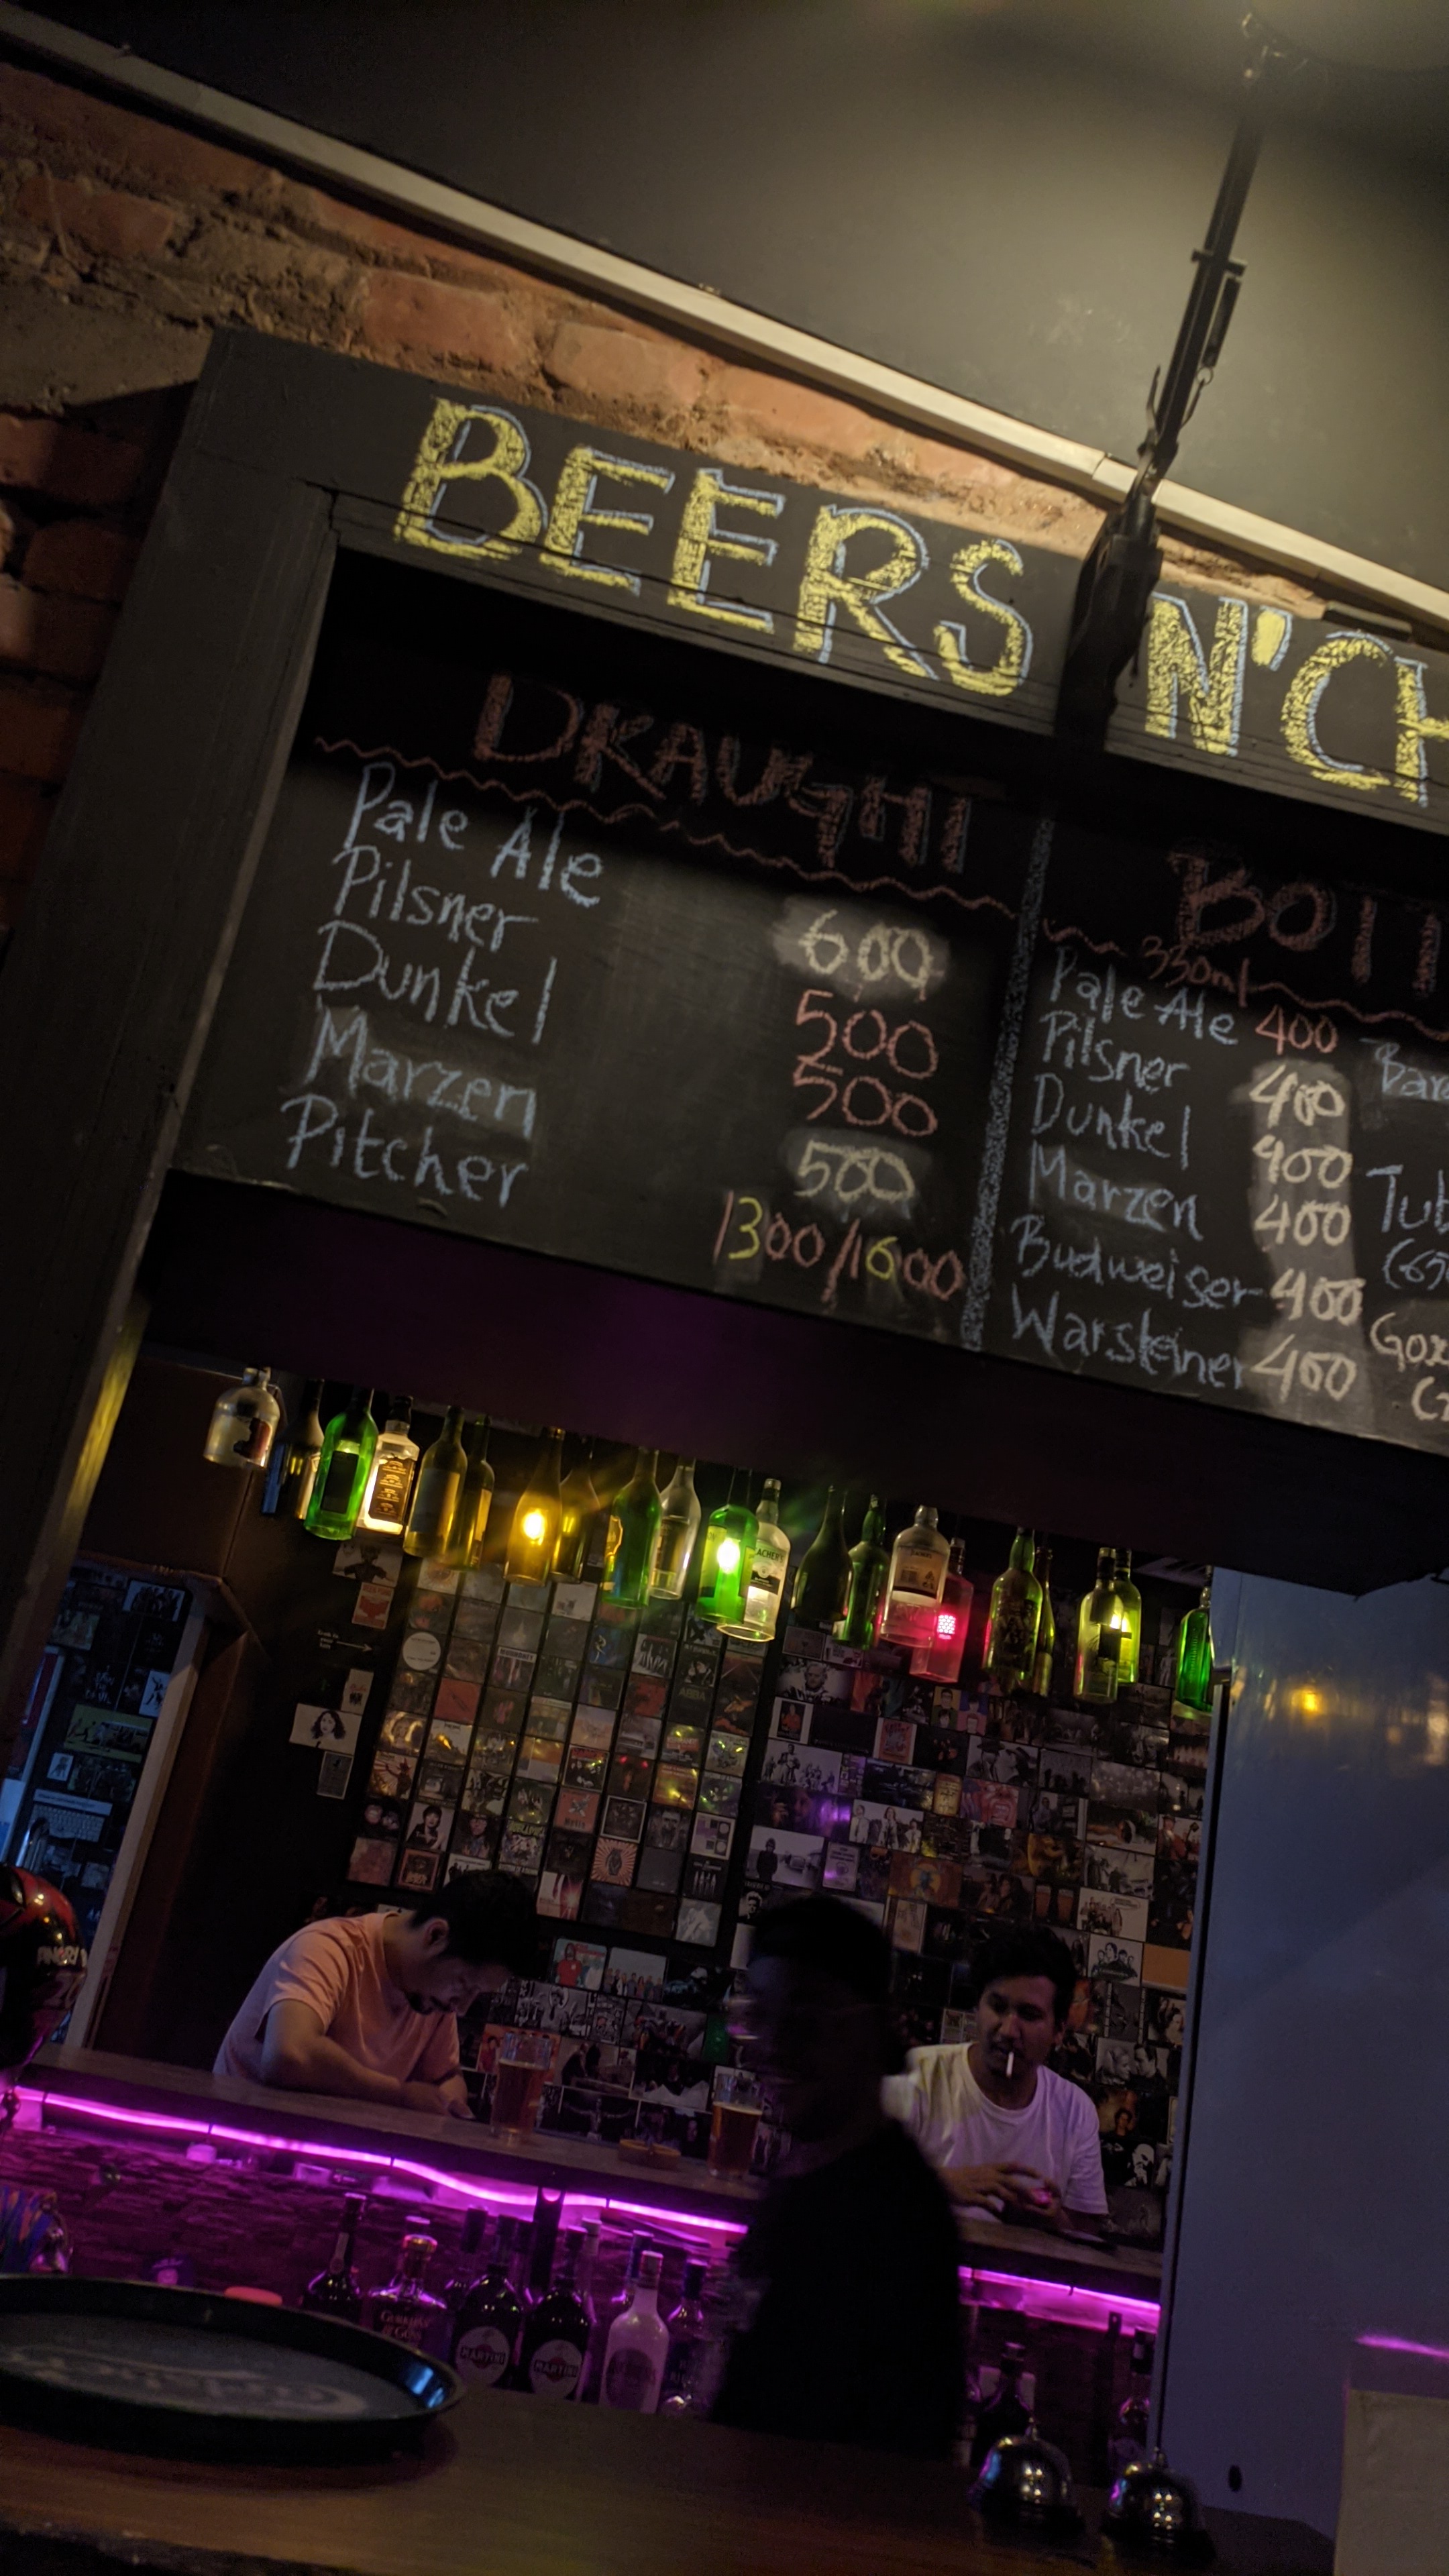 BEERS N'CH
DRAUGHT
Pale Ale 600
Pilsner 500
Dunkel 500
Marzen 500
Pitcher 1300/1600
BOTT
330ml
Pale Ale 400
Pilsner 400
Dunkel 400
Marzen 400
Budweiser 400
Warsteiner 400
Bar
Tub
(65
Gox
MARTINI
MARTINI